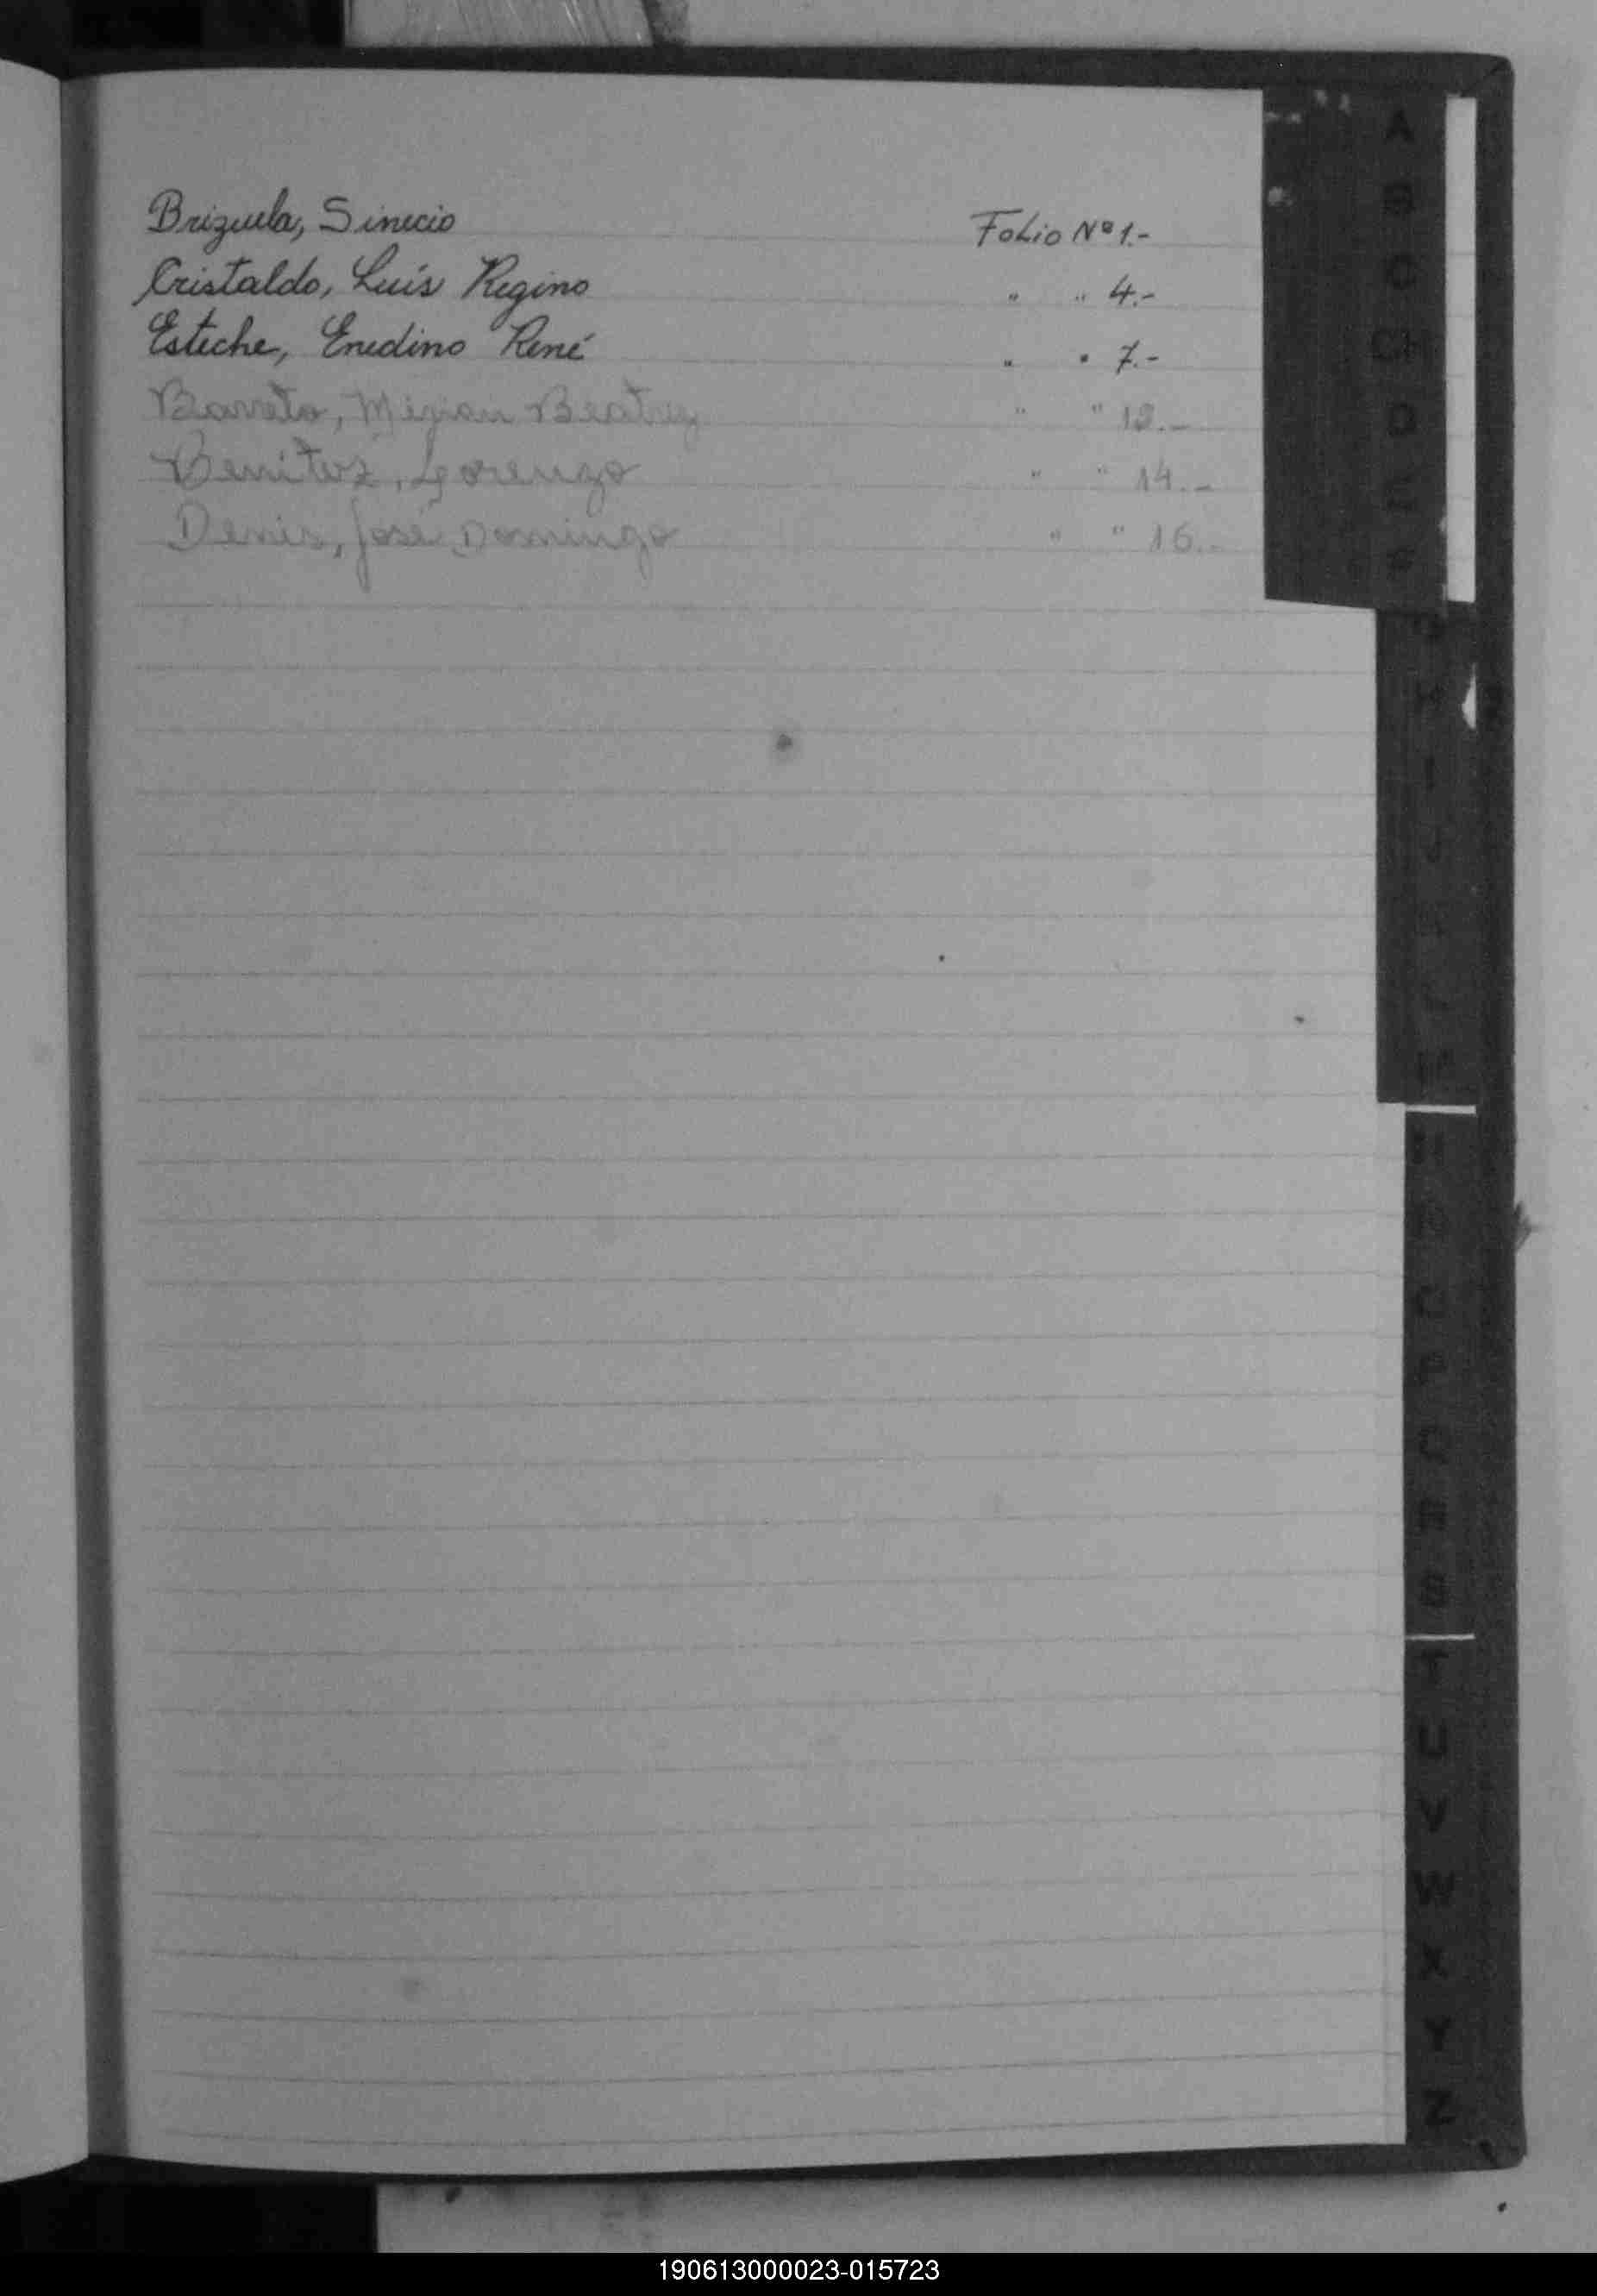 Brizuela, Sinecio Folio Nº 1.-
Cristaldo, Luís Regino " " 4.-
Esteche, Enedino René " " 7.-
Barreto, Mirian Beatriz " "
Benitez, Lorenzo " " 14.-
Denis, José Domingo " " 16.-
A
B
C
CH
D
E
F
G
H
I
J
L
M
N
O
P
Q
R
S
T
U
V
W
X
Y
Z
190613000023-015723